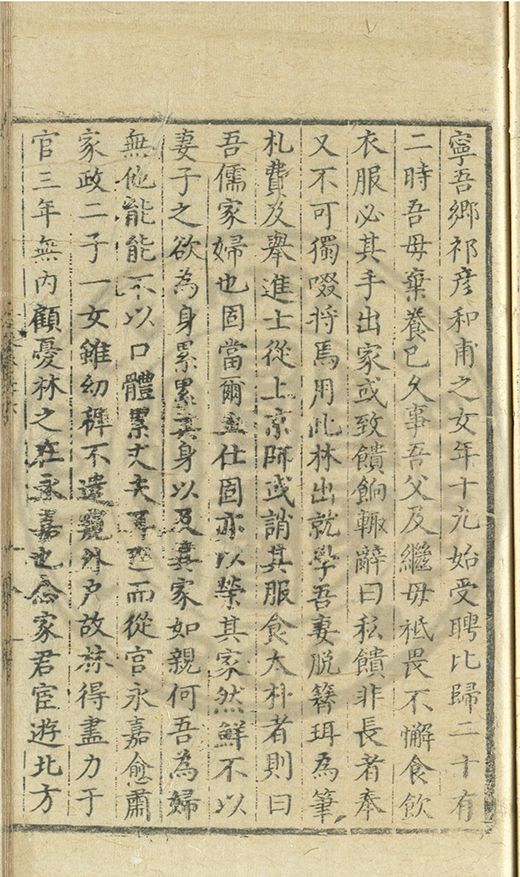 寧吾鄉祁彦和甫之女年十九始受聘比歸二十有
二時吾母棄養已久事吾父及繼母祗畏不懈食飲
衣服必其手出家或致饋餉輙辭曰私饋非長者奉
又不可獨啜將焉用此林出就學吾妻脱簪珥為筆
札費及舉進士從上京師或誚其服食太朴者則曰
吾儒家婦也固當爾且仕固亦以榮其家然鮮不以
妻子之欲為身累累其身以及其家如親何吾為婦
無他能能不以口體累大夫耳廼而從官永嘉愈肅
家政二子一女雖幼穉不遣窺外户故林得盡力于
官三年無內顧憂林之在永嘉也念家君宦遊北方